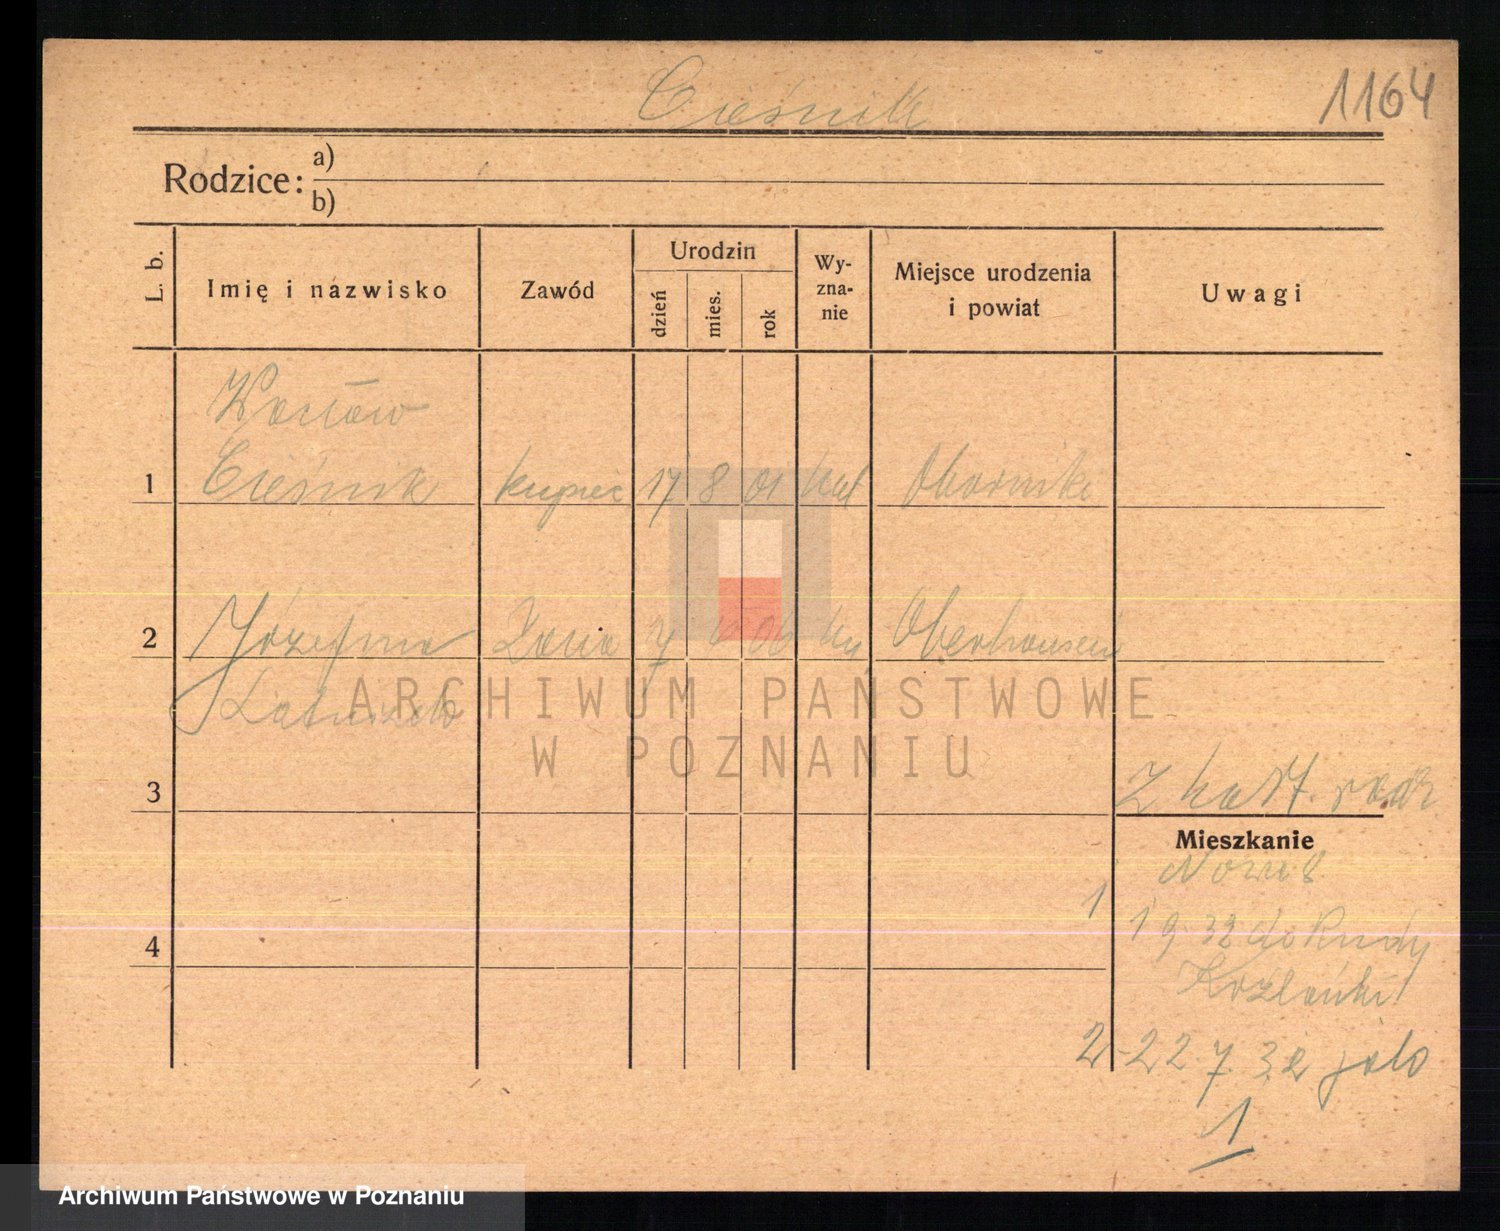 Cieśnik
1164
Rodzice: a)
b)
L. b.
Imię i nazwisko
Zawód
Urodzin
dzień
mies.
rok
Wy-
zna-
nie
Miejsce urodzenia
i powiat
Uwagi
Wacław
1 Cieśnik kupiec 17 8 01 kat Oborniki
2 Józefina żona 7 06 Oberhausen
3 Z
Mieszkanie
Nowa 8
1 1 9 32 do Rudy
4
2-22 7 32 jak
1
ARCHIWUM PAŃSTWOWE
W POZNANIU
Archiwum Państwowe w Poznaniu